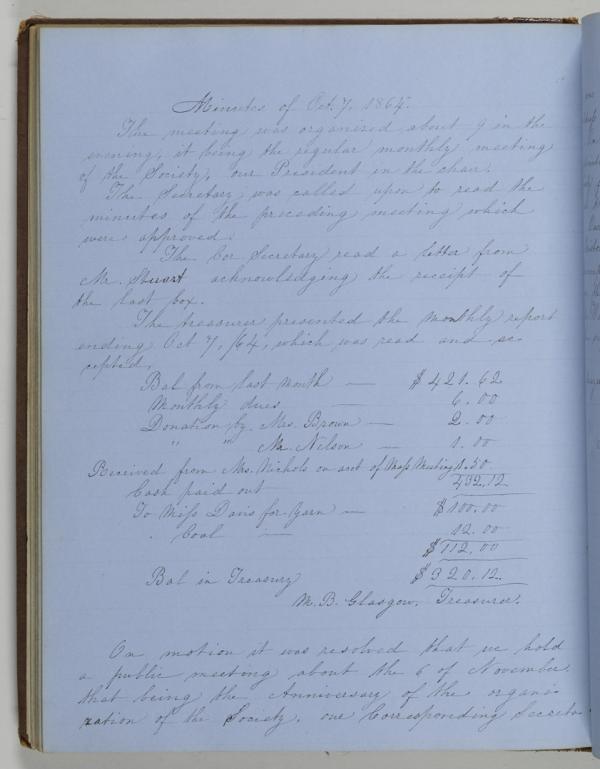 Minutes of Oct. 7, 1864.
The meeting was organized about 9 in the
evening, it being the regular monthly meeting
of the Society, our President in the chair.
The Secretary was called upon to read the
minutes of the preceding meeting which
were approved.
The Cor Secretary read a letter from
Mr. Stuart acknowledging the receipt of
the last box.
The treasurer presented the monthly report
ending Oct 7, /64, which was read and ac-
cepted.
Bal from last month — $421.62
Monthly dues — 6.00
Donation by Mrs. Brown — 2.00
" " Mr. Nelson — 1.00
Received from Mrs. Nichols on acct of Mass Meeting 1.50
432.12
Cash paid out
To Miss Davis for Yarn — $100.00
" Coal — 12.00
$112.00
Bal in Treasury $320.12.
M. B. Glasgow. Treasurer.
On motion it was resolved that we hold
a public meeting about the 6 of November
that being the Anniversary of the organi-
zation of the Society. our Corresponding Secreta-